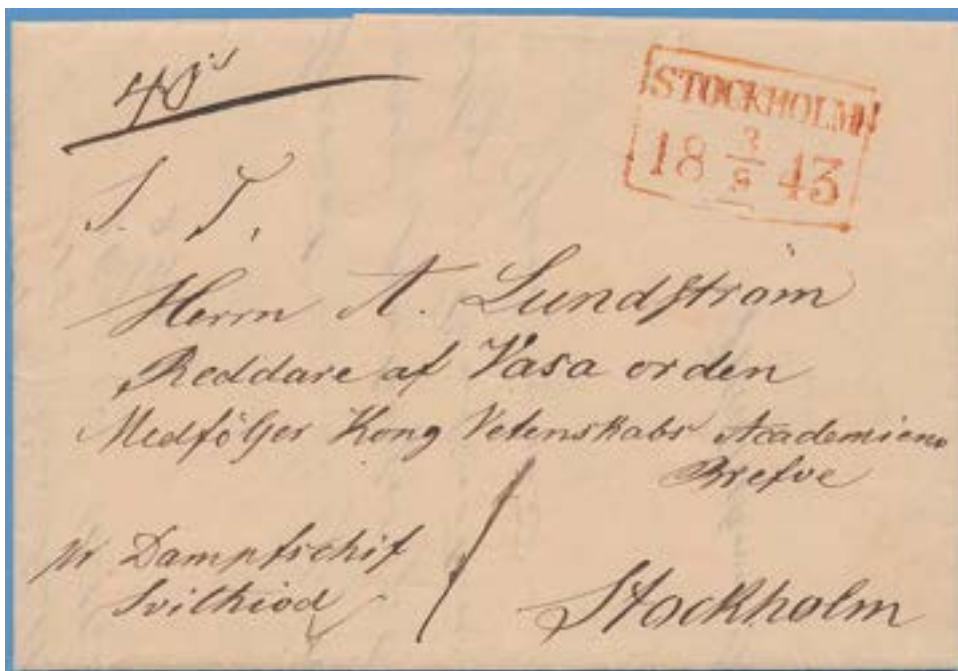 STOCKHOLM
18 43
S. T.
Herrn A. Lundström
Reddare af Vasa orden
Medföljer Kong Vetenskabs Academiens
Brefve
pr Dampfschif
Svithiod
Stockholm